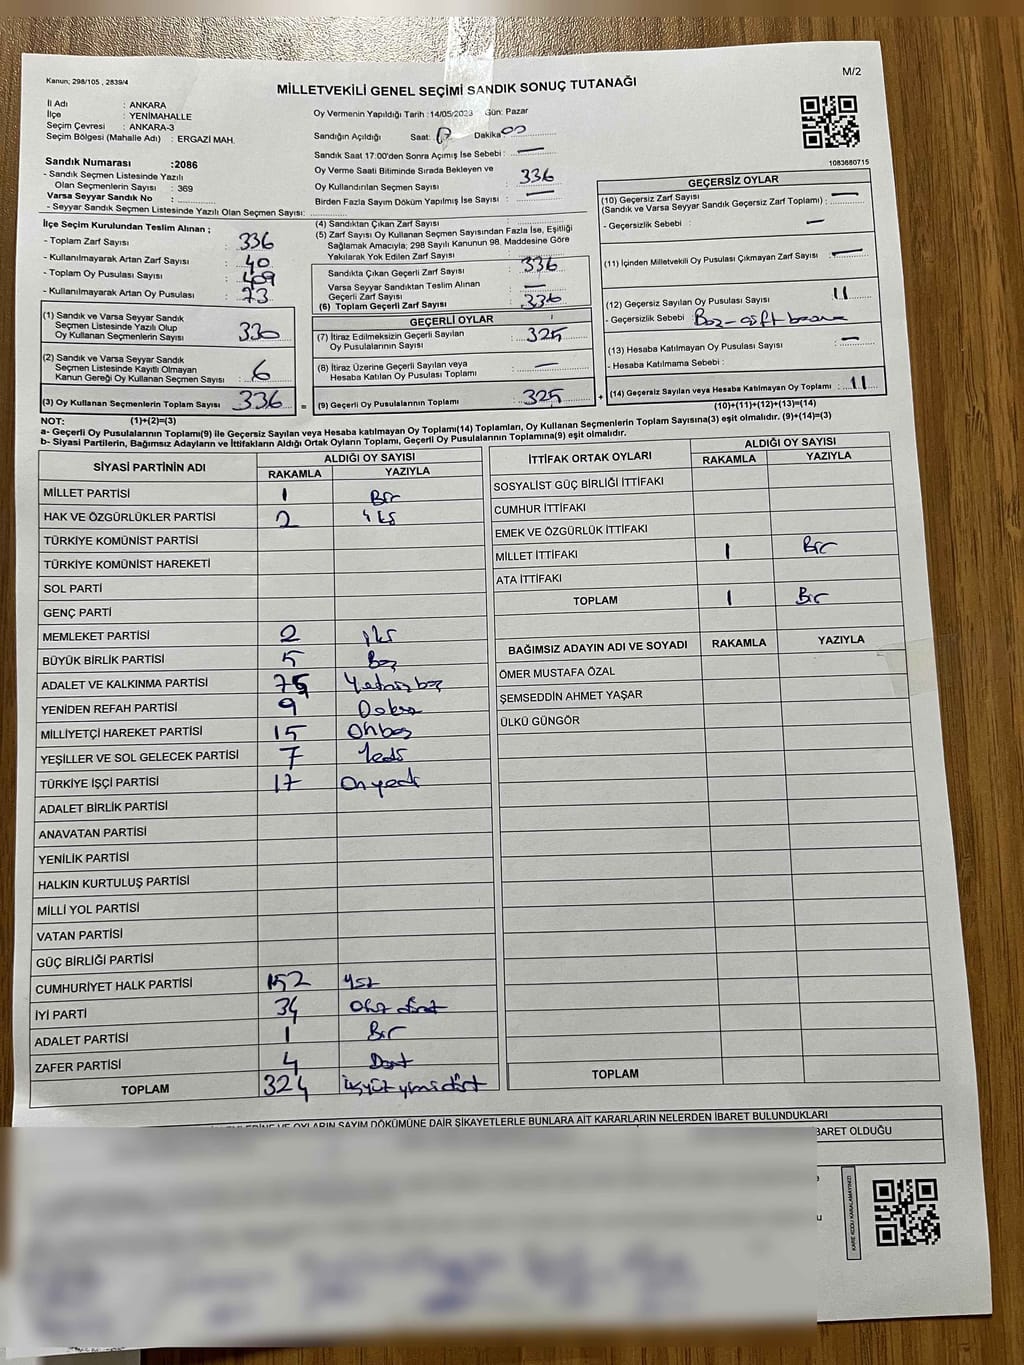 Kanun; 298/105 , 2839/4
M/2
MİLLETVEKİLİ GENEL SEÇİMİ SANDIK SONUÇ TUTANAĞI
İl Adı : ANKARA
İlçe : YENİMAHALLE
Seçim Çevresi : ANKARA-3
Seçim Bölgesi (Mahalle Adı) : ERGAZİ MAH.
Sandık Numarası :2086
- Sandık Seçmen Listesinde Yazılı
Olan Seçmenlerin Sayısı : 369
Varsa Seyyar Sandık No :
- Seyyar Sandık Seçmen Listesinde Yazılı Olan Seçmen Sayısı:
Oy Vermenin Yapıldığı Tarih :14/05/2023 Gün: Pazar
Sandığın Açıldığı Saat: Dakika 00
Sandık Saat 17:00'den Sonra Açımış İse Sebebi : —
Oy Verme Saati Bitiminde Sırada Bekleyen ve
Oy Kullandırılan Seçmen Sayısı : 336
Birden Fazla Sayım Döküm Yapılmış İse Sayısı : —
1083680715
İlçe Seçim Kurulundan Teslim Alınan ;
- Toplam Zarf Sayısı : 336
- Kullanılmayarak Artan Zarf Sayısı : 40
- Toplam Oy Pusulası Sayısı : 409
- Kullanılmayarak Artan Oy Pusulası : 73
(1) Sandık ve Varsa Seyyar Sandık
Seçmen Listesinde Yazılı Olup
Oy Kullanan Seçmenlerin Sayısı 330
(2) Sandık ve Varsa Seyyar Sandık
Seçmen Listesinde Kayıtlı Olmayan
Kanun Gereği Oy Kullanan Seçmen Sayısı 6
(3) Oy Kullanan Seçmenlerin Toplam Sayısı 336
(1)+(2)=(3)
(4) Sandıktan Çıkan Zarf Sayısı :
(5) Zarf Sayısı Oy Kullanan Seçmen Sayısından Fazla İse, Eşitliği
Sağlamak Amacıyla; 298 Sayılı Kanunun 98. Maddesine Göre
Yakılarak Yok Edilen Zarf Sayısı :
Sandıkta Çıkan Geçerli Zarf Sayısı : 336
Varsa Seyyar Sandıktan Teslim Alınan
Geçerli Zarf Sayısı : —
(6) Toplam Geçerli Zarf Sayısı : 336
GEÇERLİ OYLAR
(7) İtiraz Edilmeksizin Geçerli Sayılan
Oy Pusulalarının Sayısı : 325
(8) İtiraz Üzerine Geçerli Sayılan veya
Hesaba Katılan Oy Pusulası Toplamı : —
(9) Geçerli Oy Pusulalarının Toplamı : 325
GEÇERSİZ OYLAR
(10) Geçersiz Zarf Sayısı
(Sandık ve Varsa Seyyar Sandık Geçersiz Zarf Toplamı) : —
- Geçersizlik Sebebi : —
(11) İçinden Milletvekili Oy Pusulası Çıkmayan Zarf Sayısı : —
(12) Geçersiz Sayılan Oy Pusulası Sayısı : 11
- Geçersizlik Sebebi :
(13) Hesaba Katılmayan Oy Pusulası Sayısı : —
- Hesaba Katılmama Sebebi :
(14) Geçersiz Sayılan veya Hesaba Katılmayan Oy Toplamı : 11
(10)+(11)+(12)+(13)=(14)
NOT:
a- Geçerli Oy Pusulalarının Toplamı(9) ile Geçersiz Sayılan veya Hesaba katılmayan Oy Toplamı(14) Toplamları, Oy Kullanan Seçmenlerin Toplam Sayısına(3) eşit olmalıdır. (9)+(14)=(3)
b- Siyasi Partilerin, Bağımsız Adayların ve İttifakların Aldığı Ortak Oyların Toplamı, Geçerli Oy Pusulalarının Toplamına(9) eşit olmalıdır.
SİYASİ PARTİNİN ADI ALDIĞI OY SAYISI
RAKAMLA YAZIYLA
MİLLET PARTİSİ 1 Bir
HAK VE ÖZGÜRLÜKLER PARTİSİ 2 iki
TÜRKİYE KOMÜNİST PARTİSİ
TÜRKİYE KOMÜNİST HAREKETİ
SOL PARTİ
GENÇ PARTİ
MEMLEKET PARTİSİ 2 iki
BÜYÜK BİRLİK PARTİSİ 5 Beş
ADALET VE KALKINMA PARTİSİ 75 Yetmiş beş
YENİDEN REFAH PARTİSİ 9 Dokuz
MİLLİYETÇİ HAREKET PARTİSİ 15 Onbeş
YEŞİLLER VE SOL GELECEK PARTİSİ 7 Yedi
TÜRKİYE İŞÇİ PARTİSİ 17 Onyedi
ADALET BİRLİK PARTİSİ
ANAVATAN PARTİSİ
YENİLİK PARTİSİ
HALKIN KURTULUŞ PARTİSİ
MİLLİ YOL PARTİSİ
VATAN PARTİSİ
GÜÇ BİRLİĞİ PARTİSİ
CUMHURİYET HALK PARTİSİ 152
İYİ PARTİ 34 Otuz dört
ADALET PARTİSİ 1 Bir
ZAFER PARTİSİ 4 Dört
TOPLAM 324 üçyüz yirmi dört
İTTİFAK ORTAK OYLARI ALDIĞI OY SAYISI
RAKAMLA YAZIYLA
SOSYALİST GÜÇ BİRLİĞİ İTTİFAKI
CUMHUR İTTİFAKI
EMEK VE ÖZGÜRLÜK İTTİFAKI
MİLLET İTTİFAKI 1 Bir
ATA İTTİFAKI
TOPLAM 1 Bir
BAĞIMSIZ ADAYIN ADI VE SOYADI RAKAMLA YAZIYLA
ÖMER MUSTAFA ÖZAL
ŞEMSEDDİN AHMET YAŞAR
ÜLKÜ GÜNGÖR
TOPLAM
OYLARIN SAYIM DÖKÜMÜNE DAİR ŞİKAYETLERLE BUNLARA AİT KARARLARIN NELERDEN İBARET BULUNDUKLARI
BARET OLDUĞU
KARE KODU KARALAMAYINIZ!